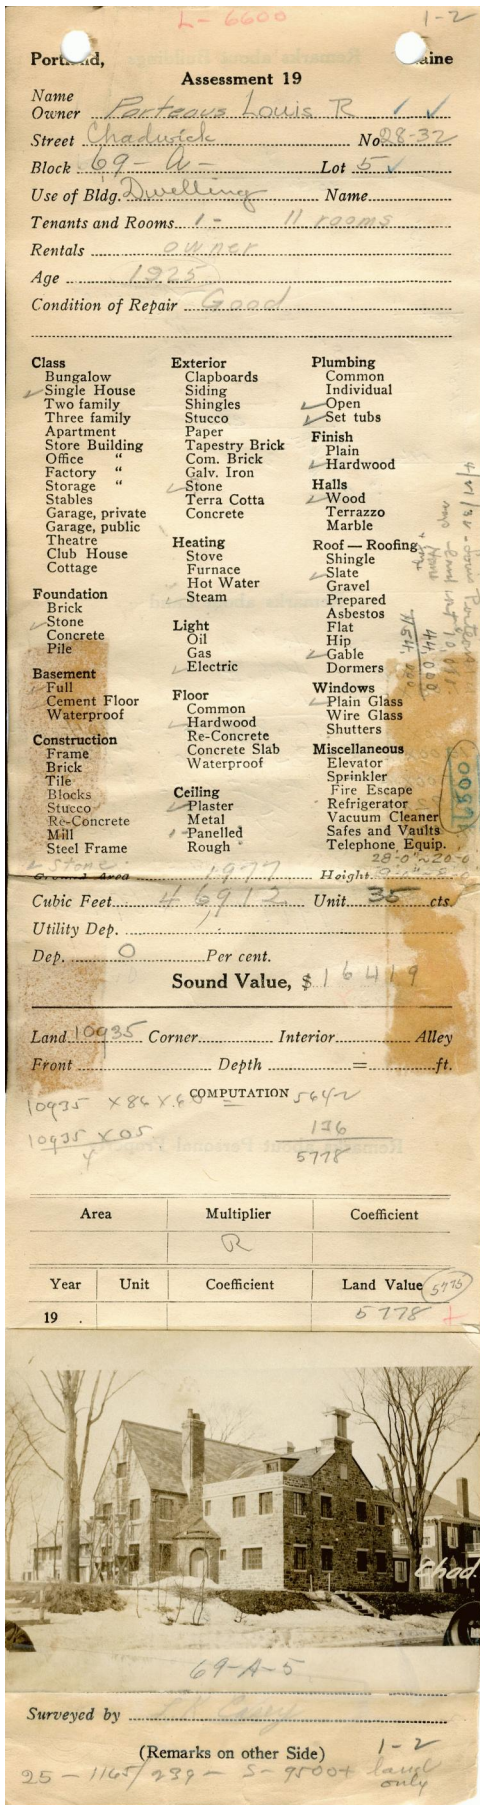 L-6600
1-2
Portland, Maine
Assessment 19
Name
Owner Porteous Louis R
Street Chadwick No 28-32
Block 69-A- Lot 5
Use of Bldg. Dwelling Name
Tenants and Rooms 1- 11 rooms
Rentals owner
Age 1925
Condition of Repair Good
Class
Bungalow
Single House
Two family
Three family
Apartment
Store Building
Office "
Factory "
Storage "
Stables
Garage, private
Garage, public
Theatre
Club House
Cottage
Foundation
Brick
Stone
Concrete
Pile
Basement
Full
Cement Floor
Waterproof
Construction
Frame
Brick
Tile
Blocks
Stucco
Re-Concrete
Mill
Steel Frame
Stone
Exterior
Clapboards
Siding
Shingles
Stucco
Paper
Tapestry Brick
Com. Brick
Galv. Iron
Stone
Terra Cotta
Concrete
Heating
Stove
Furnace
Hot Water
Steam
Light
Oil
Gas
Electric
Floor
Common
Hardwood
Re-Concrete
Concrete Slab
Waterproof
Ceiling
Plaster
Metal
Panelled
Rough
Plumbing
Common
Individual
Open
Set tubs
Finish
Plain
Hardwood
Halls
Wood
Terrazzo
Marble
Roof — Roofing
Shingle
Slate
Gravel
Prepared
Asbestos
Flat
Hip
Gable
Dormers
Windows
Plain Glass
Wire Glass
Shutters
Miscellaneous
Elevator
Sprinkler
Fire Escape
Refrigerator
Vacuum Cleaner
Safes and Vaults
Telephone Equip.
44,000
28-0"~20-0
Ground Area 1977 Height
Cubic Feet 46912 Unit 35 cts.
Utility Dep.
Dep. 0 Per cent.
Sound Value, $ 16419
Land 10935 Corner Interior Alley
Front Depth = ft.
COMPUTATION
10935 X 86 X .60 = 5642
10935 X 05 136
4 5778
Area Multiplier Coefficient
R
Year Unit Coefficient Land Value 5775
19 . 5778
Chad.
69-A-5
Surveyed by
(Remarks on other Side)
1-2
25 - 1165/239 - S-9500+ land
only